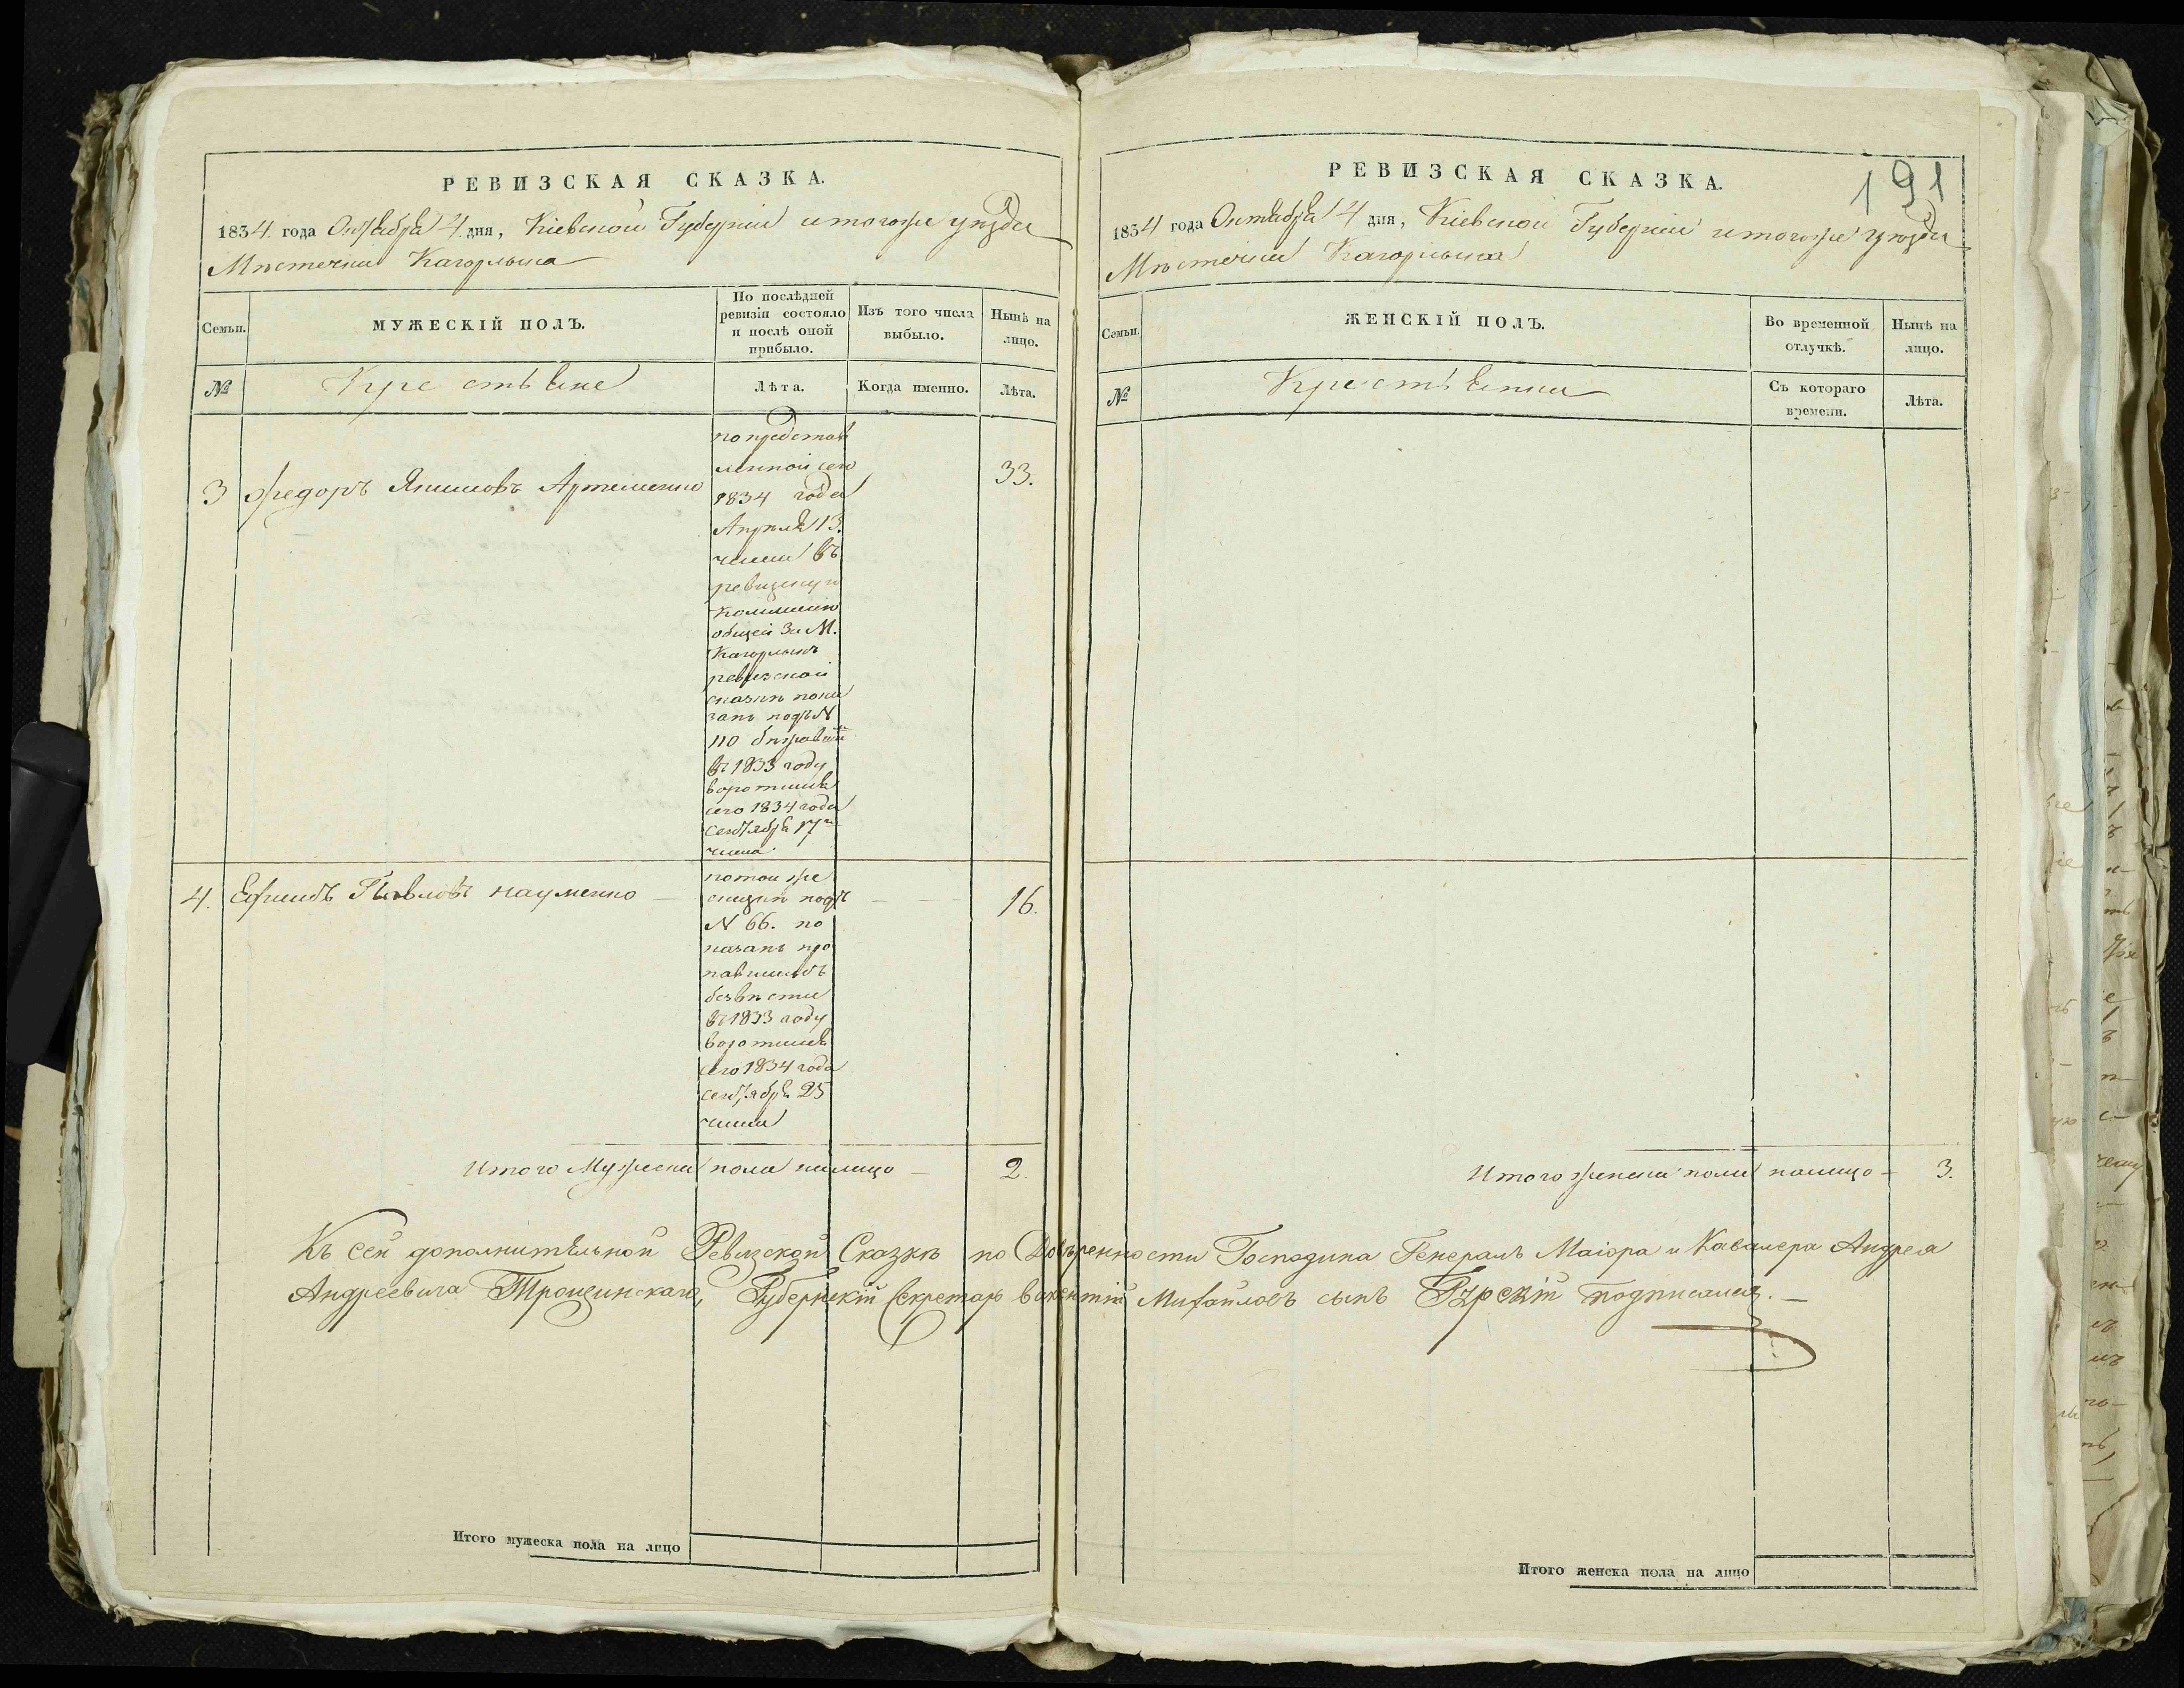 РЕВИЗСКАЯ СКАЗКА.
1834. года Октября 4. дня, Кіевской Губерніи итогоже уѣзда
Мѣстечка Кагорлыка
Семьи.
МУЖЕСКІЙ ПОЛЪ.
По послѣдней ревизіи состояло и послѣ оной прибыло.
Изъ того числа выбыло.
Нынѣ на лицо.
№
Крестьяне
Лѣта.
Когда именно.
Лѣта.
3 Федоръ Якимовъ Артеменко
33.
по представ
ленной сего
1834 года
Апрѣля 13.
числа въ
ревизскую
Коммисію
общей За М.
Кагорлыкъ
ревизской
сказкѣ пока
занъ подъ N
110 бѣжавшій
въ 1833 году
воротился
сего 1834 года
сентября 17го
числа.
4. Ефимъ Павловъ Науменко
16.
потой же
сказки подъ
N 66. по
казанъ про
павшимъ
безвѣсти
въ 1833 году
воротился
сего 1834 года
сентября 25
числа
Итого Мужеска пола налицо - 2.
Къ сей дополнительной Ревизской Сказкѣ по Довѣренности Господина Генералъ Маіора и Кавалера Андрея
Андреевича Трощинскаго, Губернскій Секретарь Викентій Михайловъ сынъ подписался.
Итого мужеска пола на лицо
191
РЕВИЗСКАЯ СКАЗКА.
1834 года Октября 4 дня, Кіевской Губерніи итогоже уѣзда
Мѣстечка Кагорлыка
Семьи.
ЖЕНСКІЙ ПОЛЪ.
Во временной отлучкѣ.
Нынѣ на лицо.
№
Крестьянки
Съ котораго времени.
Лѣта.
Итого женска пола налицо - 3.
Итого женска пола на лицо